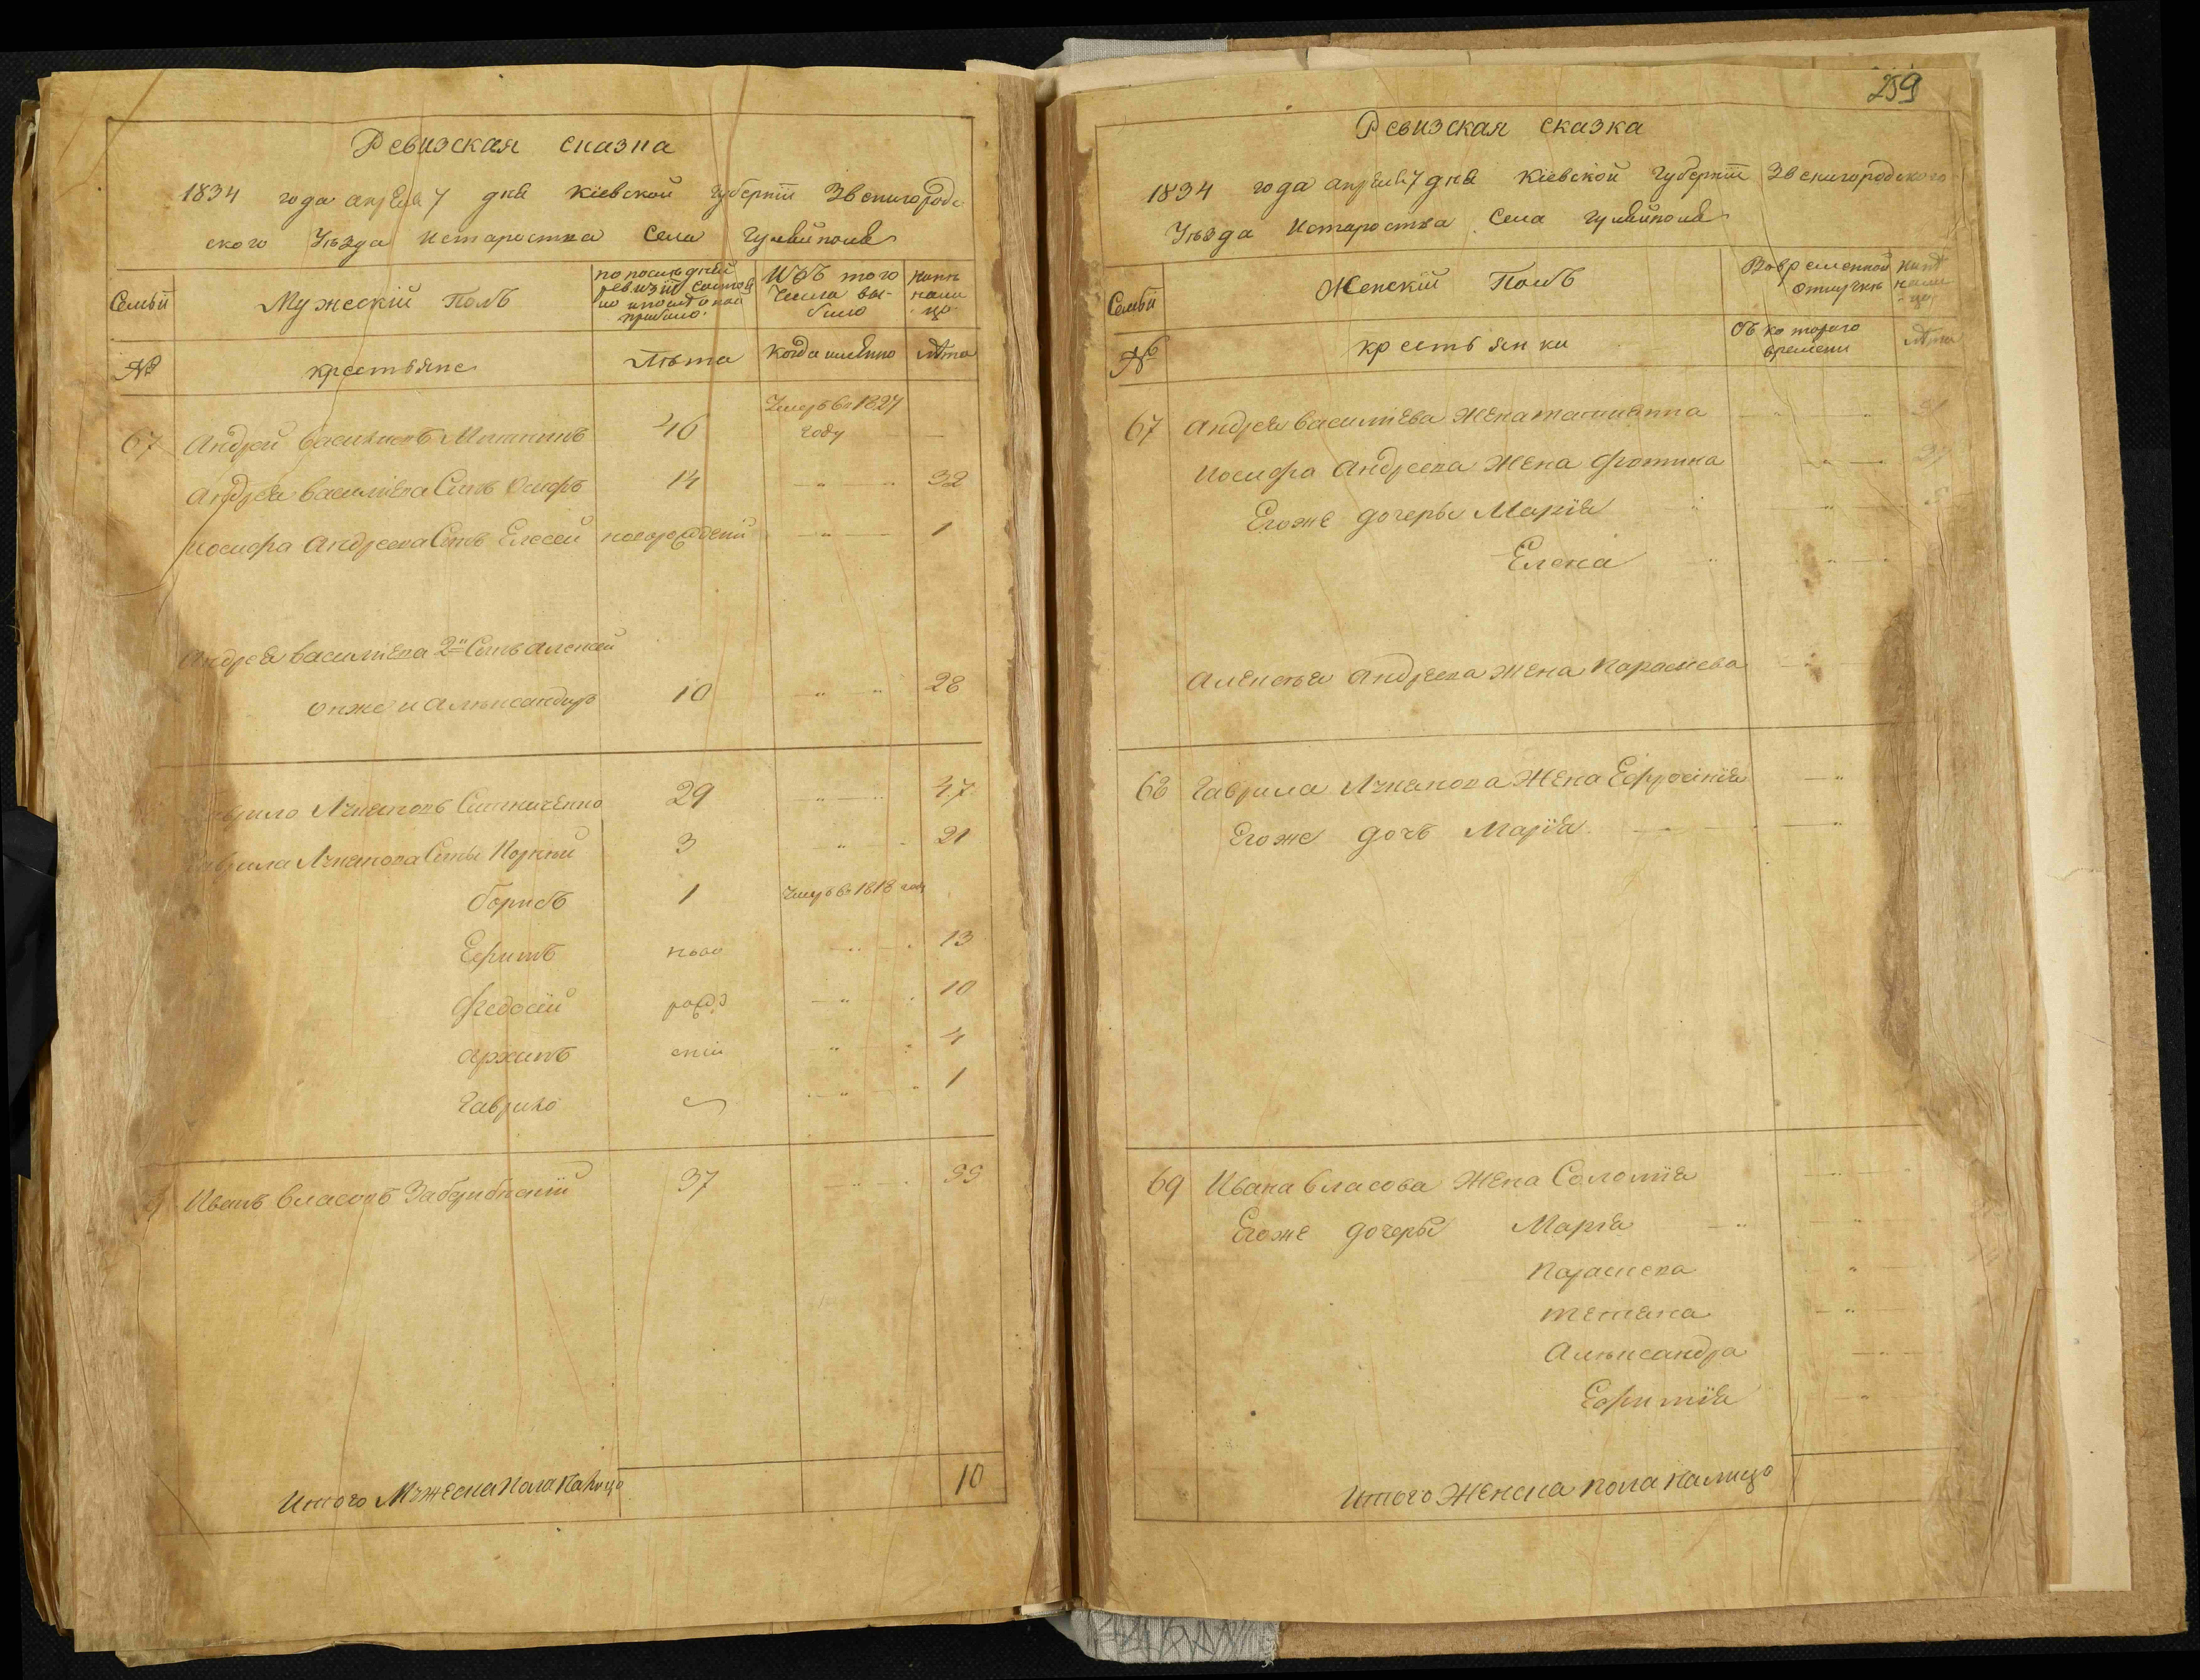 Ревизская сказка
1834 года апреля 7 дня Кіевской губерніи Звенигородс
ского Уѣзда Истароства Села Гуляйполя
Семьи
Мужескій Полъ
по послѣдней
ревизіи состоя
ло и после оной
прибило.
Изъ того
числа вы-
било
ныне
нали
цо
№
крестьяне
Лѣта
Когда имянно
лѣта
67 Андрей васильевъ 46 Умеръ въ 1827
году
Андрея василіева Сынъ Осифъ 14 32
Иосифа Андреева Сынъ Елесей новорожденій 1
Андрея василіева 2й Сынъ алексей
онже и алѣксандръ 10 28
Игнатовъ 29 47
Гаврила Игнатова Сыны 3 21
борисъ 1 Умеръ въ 1818 году
Ефимъ ново 13
Федосій рожд 10
архипъ еній 4
Гаврило 1
9 Иванъ власовъ 37 55
Итого Мужеска Пола Налицо 10
259
Ревизская сказка
1834 года апреля 7 дня Кіевской Губерніи Звенигородского
Уѣзда Истароства Села Гуляйполя
Семьи
Женскій Полъ
Вовременной
отлучкѣ
нали
цо
№
крестьянки
Съ которого
времени
лѣта
67 Андрея василиева Жена татиянна 51
Иосифа Андреева Жена Фотина 27
Егоже дочеры Марія 5
Елена
Алексѣя андреева жена Параскева
68 Гаврила Игнатова Жена Ефросінія
Егоже дочъ Марія
69 Ивана власова Жена Соломія
Егоже дочеры Марія
Параскева
тетяна
Алѣксандра
Ефимія
Итого Женска пола налицо